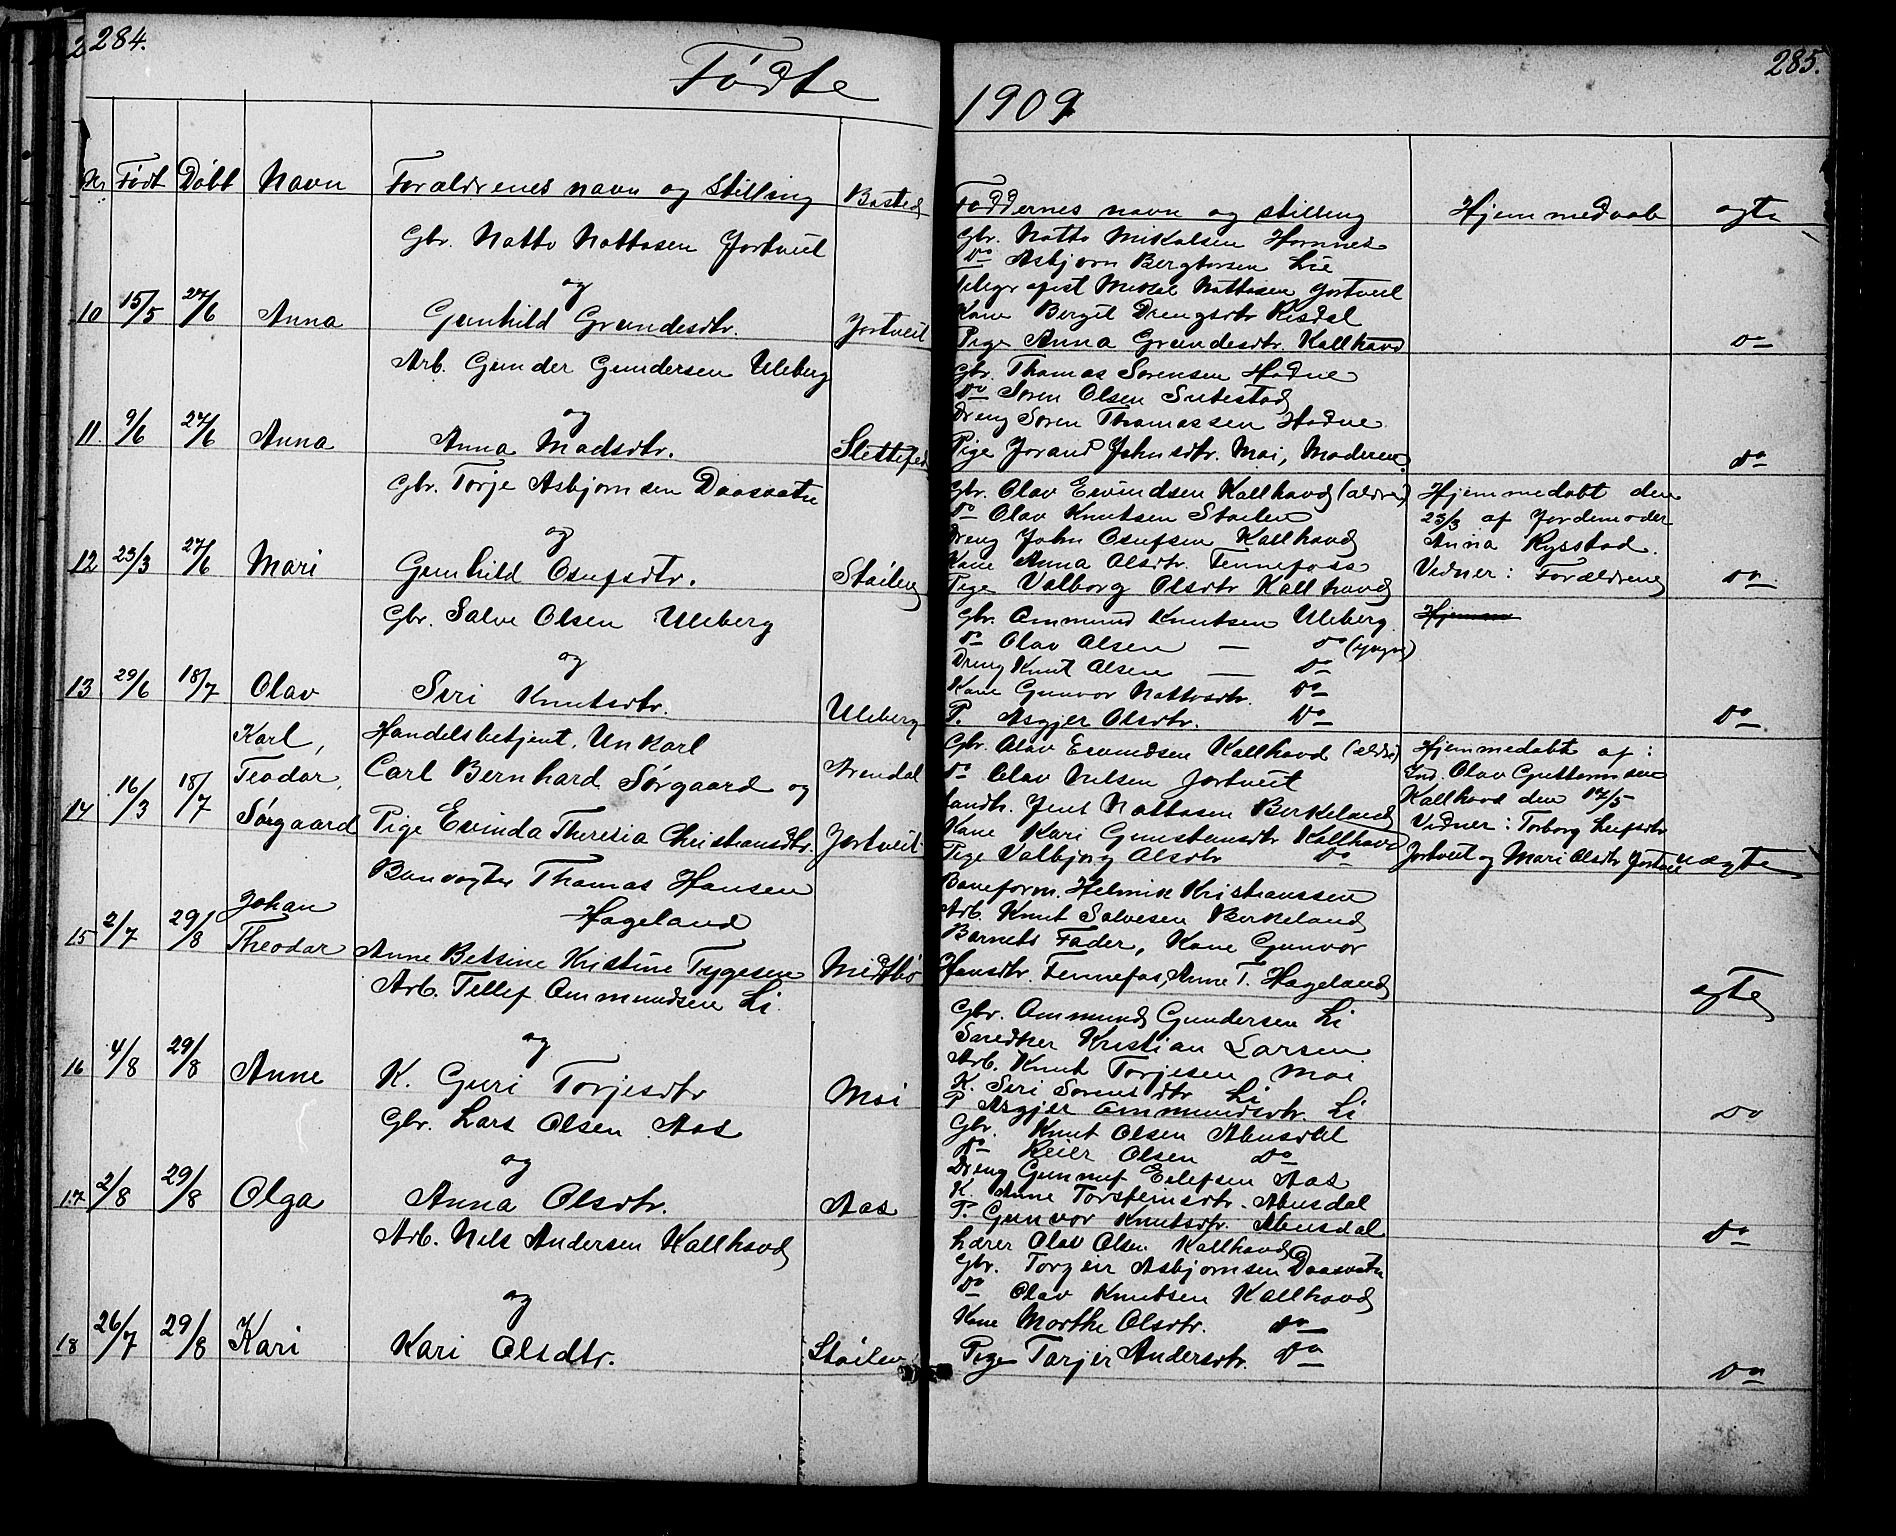 284.
Fødte
Nr Født Døbt Navn Forældrenes navn og stilling Bosted
Gbr. Natto Nottosen Jortveit
og
10 15/5 27/6 Anna Gunhild Grundesdtr. Jortveit
Arb. Gunder Gundersen Uleberg
og
11 9/6 27/6 Anna Anna Madsdtr.
Gbr. Torje Asbjornsen Daasvatn
og
12 23/3 27/6 Mari Gunhild Osufsdtr. Støilen
Gbr. Salve Olsen Uleberg
og
13 29/6 18/7 Olav Siri Knutsdtr. Uleberg
Karl, Handelsbetjent, Unkarl
Teodor, Carl Bernhard Sørgaard og Arendal
14 16/3 18/7
Sørgaard Pige Evinda Theresia Christiansdtr. Jortveit
Banvogter Thomas Hansen
Johan Hageland
15 2/7 29/8 Theodor Anne Betsine Kristine Tygesen Midtbø
Arb. Tellef Ommundsen Li.
og
16 4/8 29/8 Anne K. Guri Torjesdtr Moi
Gbr. Lars Olsen Aas
og
17 2/8 29/8 Olga Anna Olsdtr. Aas
Arb. Nils Andersen Kallhovd
og
18 26/7 29/8 Kari Kari Olsdtr. Støilen
285.
1909
Faddernes navn og stilling Hjemmedaab ægte
Gbr. Natto Mikalsen Hornnes
do Asbjorn Bergtorsen Lie
Nottosen Jortveit
Kone Bergit Drengsdtr Risdal
Pige Anna Grundesdtr. Kallhovd do
Gbr. Thomas Sorensen Hodne
do Soren Olsen
Dreng Soren Thomassen Hodne
Pige Jorand Johnsdtr. Moi, Moderen. do
Gbr. Olav Evindsen Kallhovd (ældre) Hjemmedøbt den
do Olav Knutsen Støilen 23/3 af Jordemoder
Dreng John Osufsen Kallhovd Anna Rysstad.
Kone Anna Olsdtr. Fennefoss Vidner: Forældrene
Pige Valborg Olsdtr Kallhovd do
Gbr. Ommund Knutsen Uleberg
do Olav Olsen — do (yngre)
Dreng Knut Olsen — do
Kone Gunvor Nottosdtr. do
P. Asgjer Olsdtr. do do
Gbr. Olav Evindsen Kallhovd (ældre) Hjemmedøbt af:
do Olav Nilsen Jortveit Ind. Olav Guttormsen
Landh. Jens Nottosen Berkeland Kallhovd den 17/5
Kone Kari Gunstensdtr Kallhovd Vidner: Torborg Leifsdtr
Pige Valbjøg Olsdtr do Jortveit og Mari Olsdtr Jortveit uægte
Baneform. Helmik Kristianssen
Arb. Knut Salvesen Berkeland
Barnets Fader, Kone Gunvor
Hansdtr. Fennefos, Anne T. Hageland ægte
Gbr. Ommund Gundersen Li
Snedker Kristian Larsen
Arb. Knut Torjesen Moi
K. Siri Sorensdtr Li
P Asgjer Ommundsdtr. Li do
Gbr. Knut Olsen Abusdal
do Reier Olsen do
Dreng Gunnuf Eilefsen Aas
K. Anne Torsteinsdtr. Abusdal
P. Gunvor Knutsdtr. Abusdal do
Lærer Olav Olsen Kallhovd
Gbr. Torgeir Asbjornsen Daasvatn
do Olav Knutsen Kallhovd
Kone Morthe Olsdtr. do
Pige Tarjer Andersdtr. do do